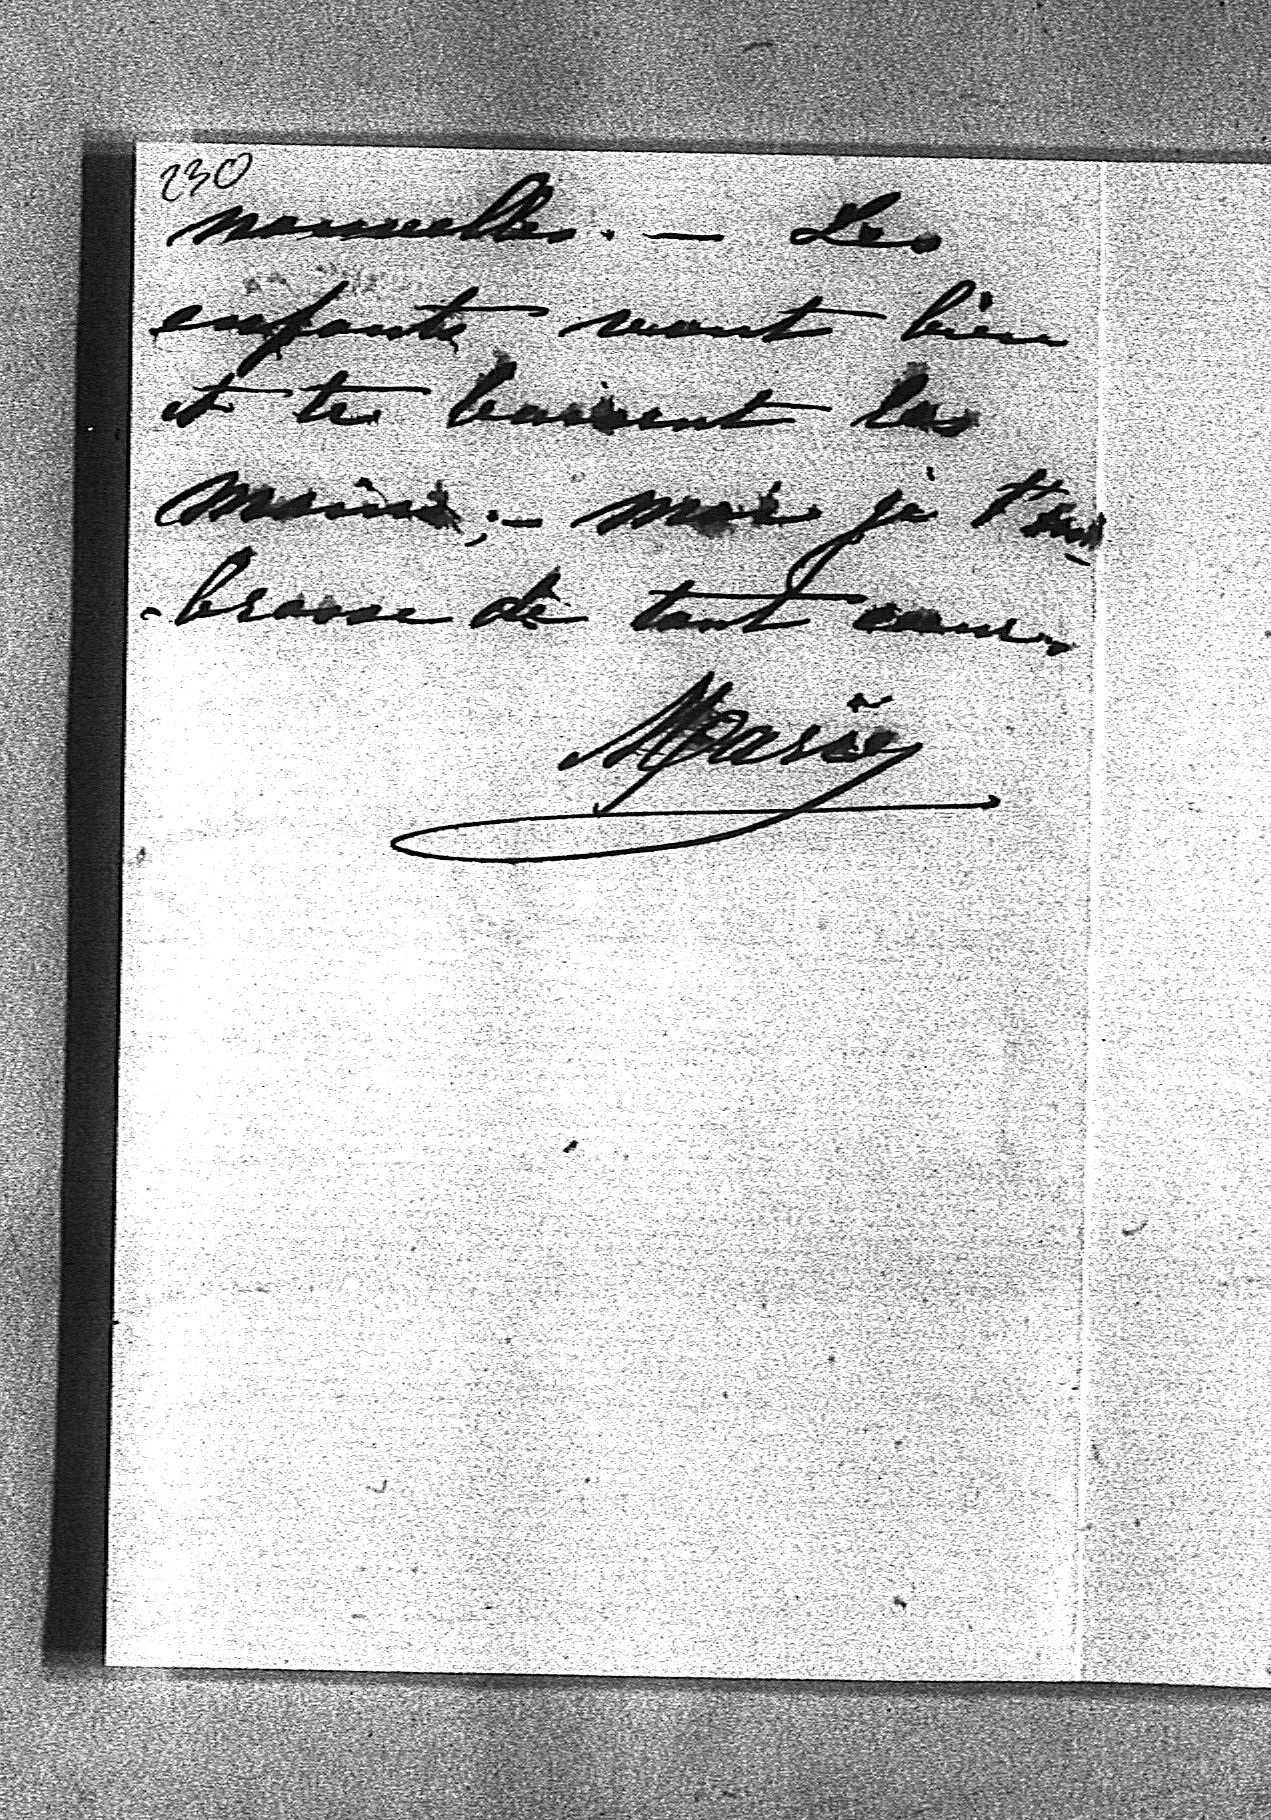 230
nouvelles. — Les
enfants vont bien
et te baisent les
mains; — moi je t'em
-brasse de tout coeur.
Marie